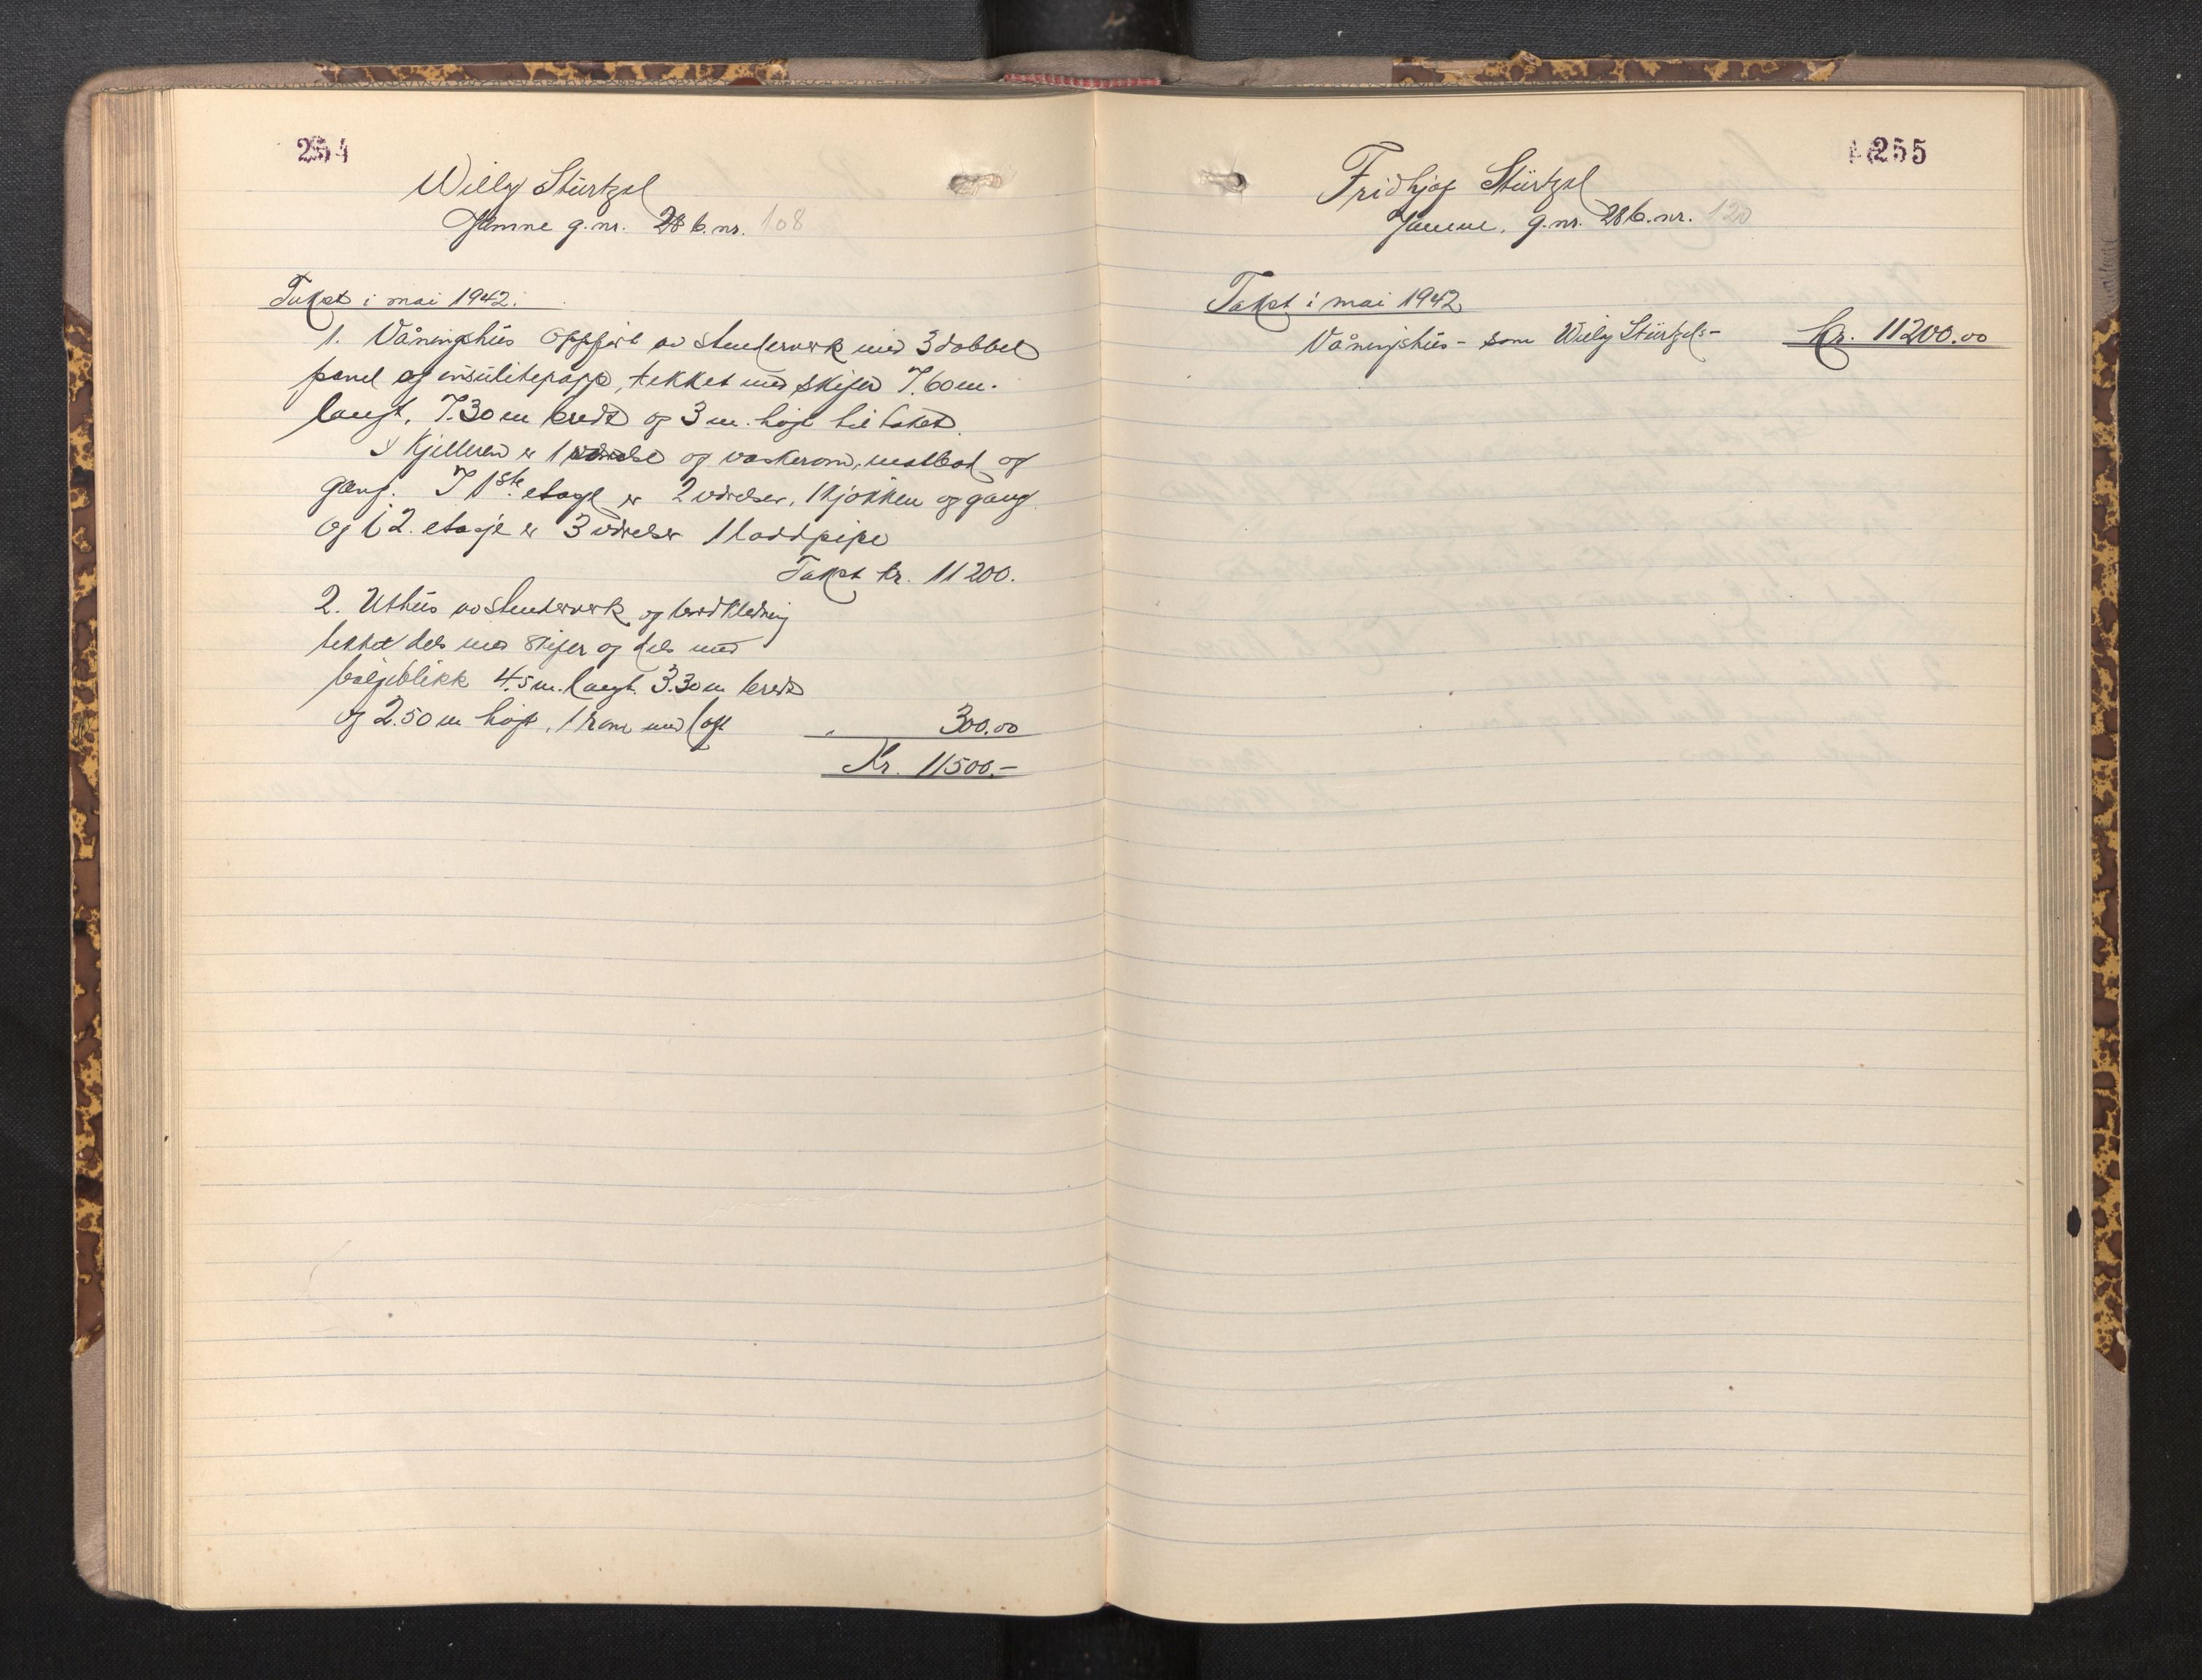 254
Willy Stürtzel
Jamne g.nr. 28 b.nr. 108
Takst i mai 1942.
1. Våningshus oppført av stenderverk med 3 dobbel
panel og insulitepapp, tekket med skifer 7.60 m.
langt, 7.30 m bredt og 3 m. høgt til taket.
I Kjelleren er 1 værelse og vaskerom, matbod og
gang. I 1ste etage er 2 værelser, 1 kjøkken og gang
og i 2. etasje er 3 værelser 1 loddpipe
Takst kr. 11200.
2. Uthus av stenderverk og bordkledning
tekket dels med skifer og dels med
bølgeblikk 4.5 m. langt. 3.30 m bredt
og 2.50 m høgt, 1 rom med loft " 300.00
Kr. 11500.-
255
Fridhjof Stürtzel
Jamne, g.nr. 28 b.nr. 120
Takst i mai 1942
Våningshus - som Willy Stürtzels - kr. 11200.00